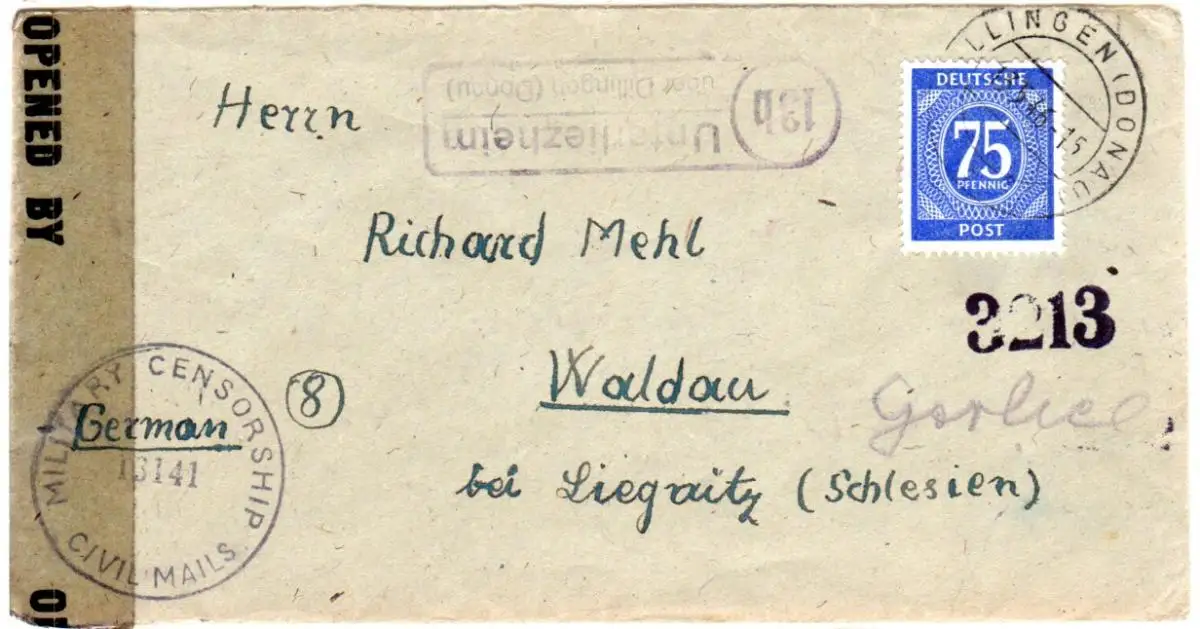 OPENED BY
DILLINGEN (DONAU)
13b
Unterliezheim
über Dillingen (Donau)
DEUTSCHE
75
PFENNIG
POST
Herrn
Richard Mehl
3213
Waldau
bei Liegnitz (Schlesien)
(8)
German
MILITARY CENSORSHIP
13141
CIVIL MAILS